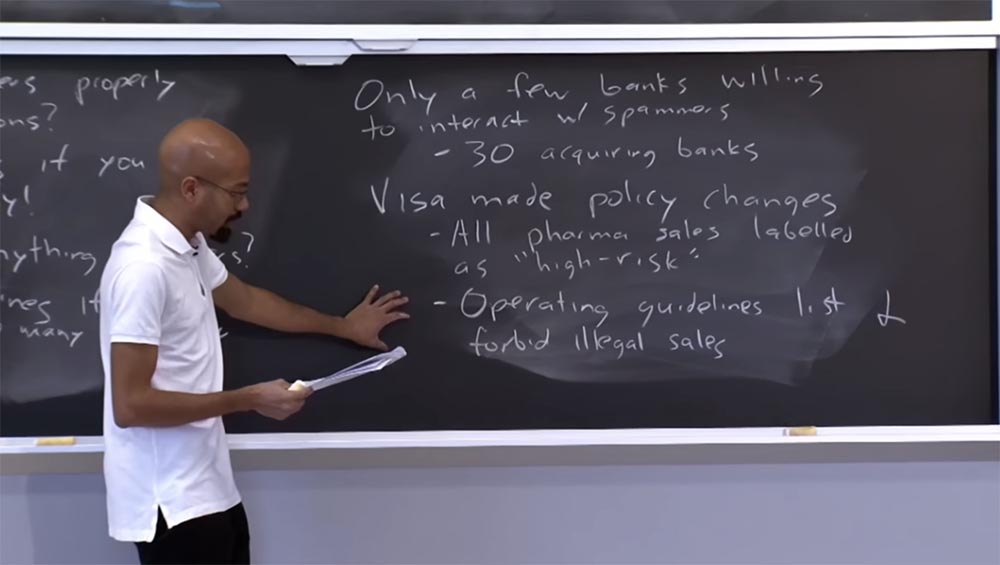 properly
ons?
if you
y!
ything
many
Only a few banks willing
to interact w/ spammers
- 30 acquiring banks
Visa made policy changes
- All pharma sales labelled
as "high-risk"
- Operating guidelines list &
forbid illegal sales